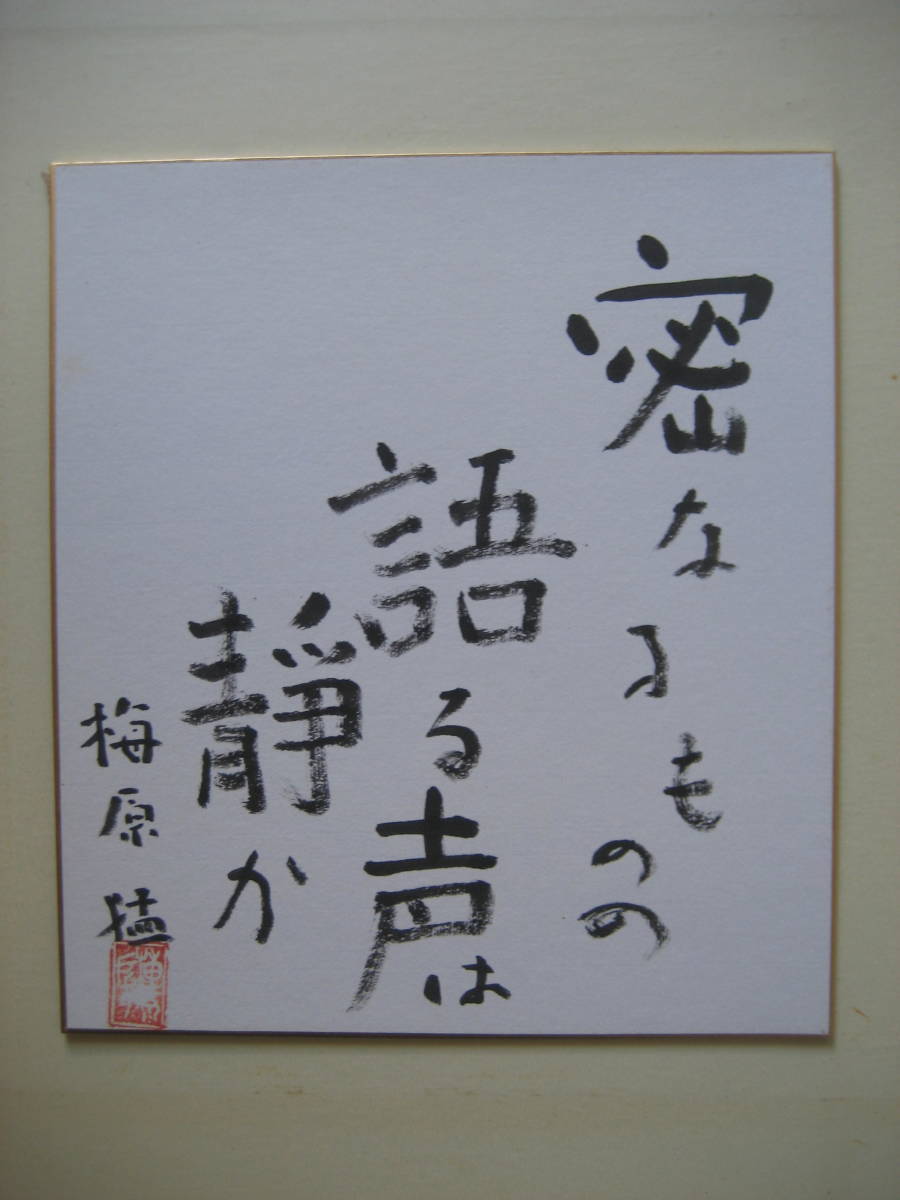 密なるものの
語る声は
靜か
梅原猛